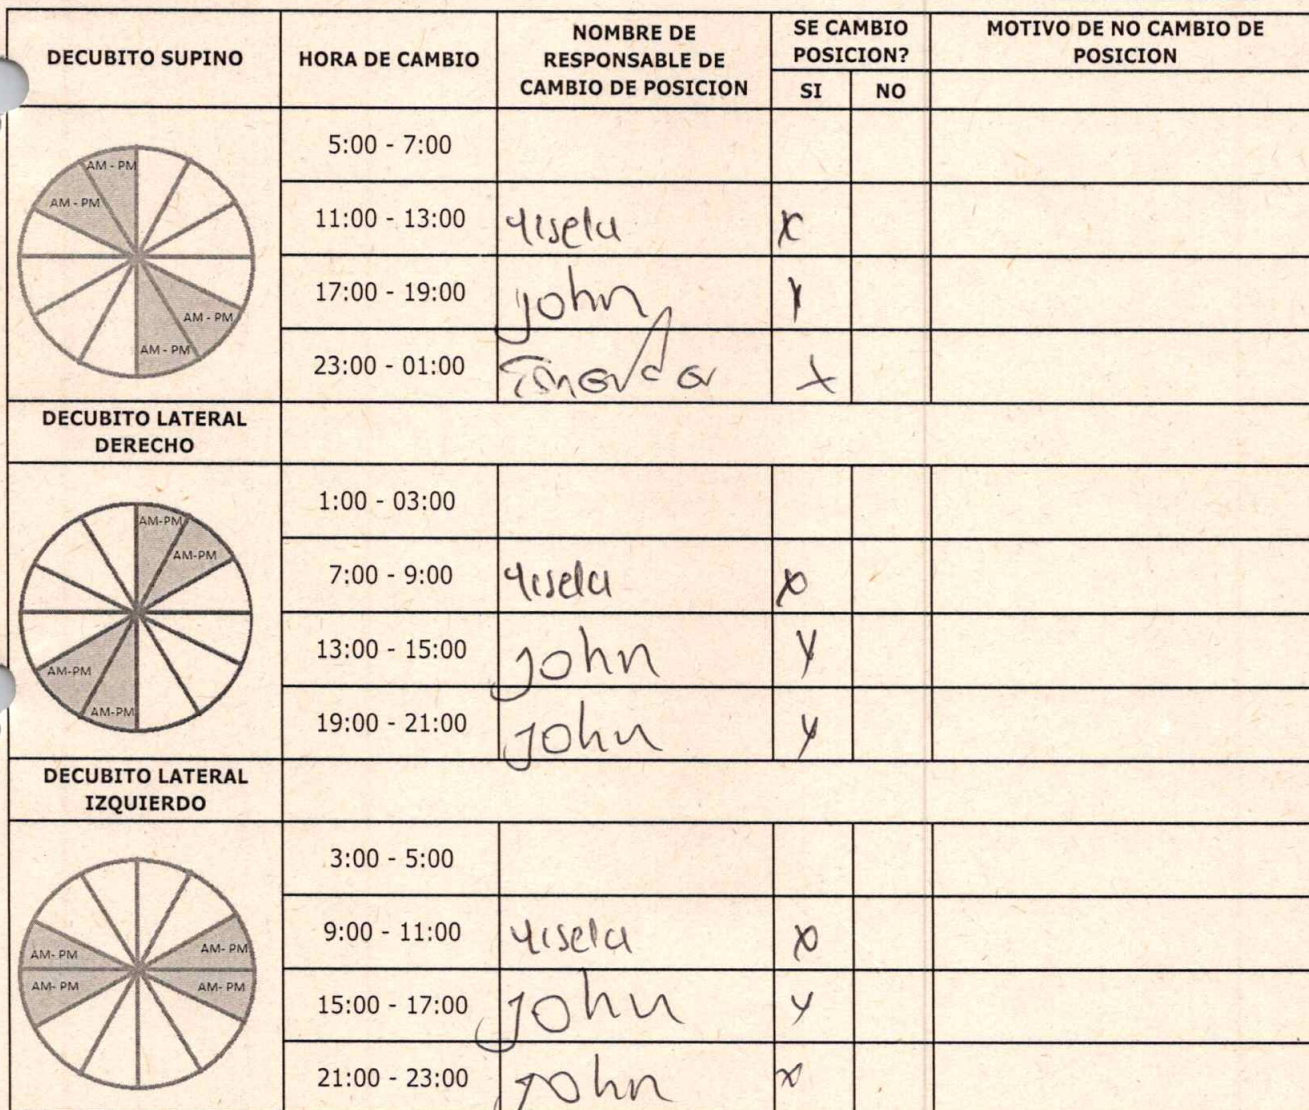 DECUBITO SUPINO
HORA DE CAMBIO
NOMBRE DE
RESPONSABLE DE
CAMBIO DE POSICION
SE CAMBIO
POSICION?
SI
NO
MOTIVO DE NO CAMBIO DE
POSICION
AM - PM
AM - PM
AM - PM
AM - PM
5:00 - 7:00
11:00 - 13:00 Yisela X
17:00 - 19:00 john X
23:00 - 01:00 X
DECUBITO LATERAL
DERECHO
AM-PM
AM-PM
AM-PM
AM-PM
1:00 - 03:00
7:00 - 9:00 Yisela X
13:00 - 15:00 john X
19:00 - 21:00 john X
DECUBITO LATERAL
IZQUIERDO
AM- PM
AM- PM
AM- PM
AM- PM
3:00 - 5:00
9:00 - 11:00 Yisela X
15:00 - 17:00 john X
21:00 - 23:00 john X